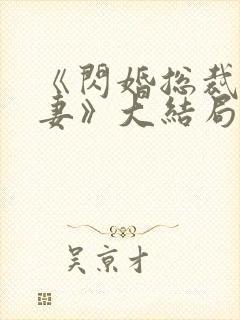 《閃婚总裁
妻》大結局
吴京才